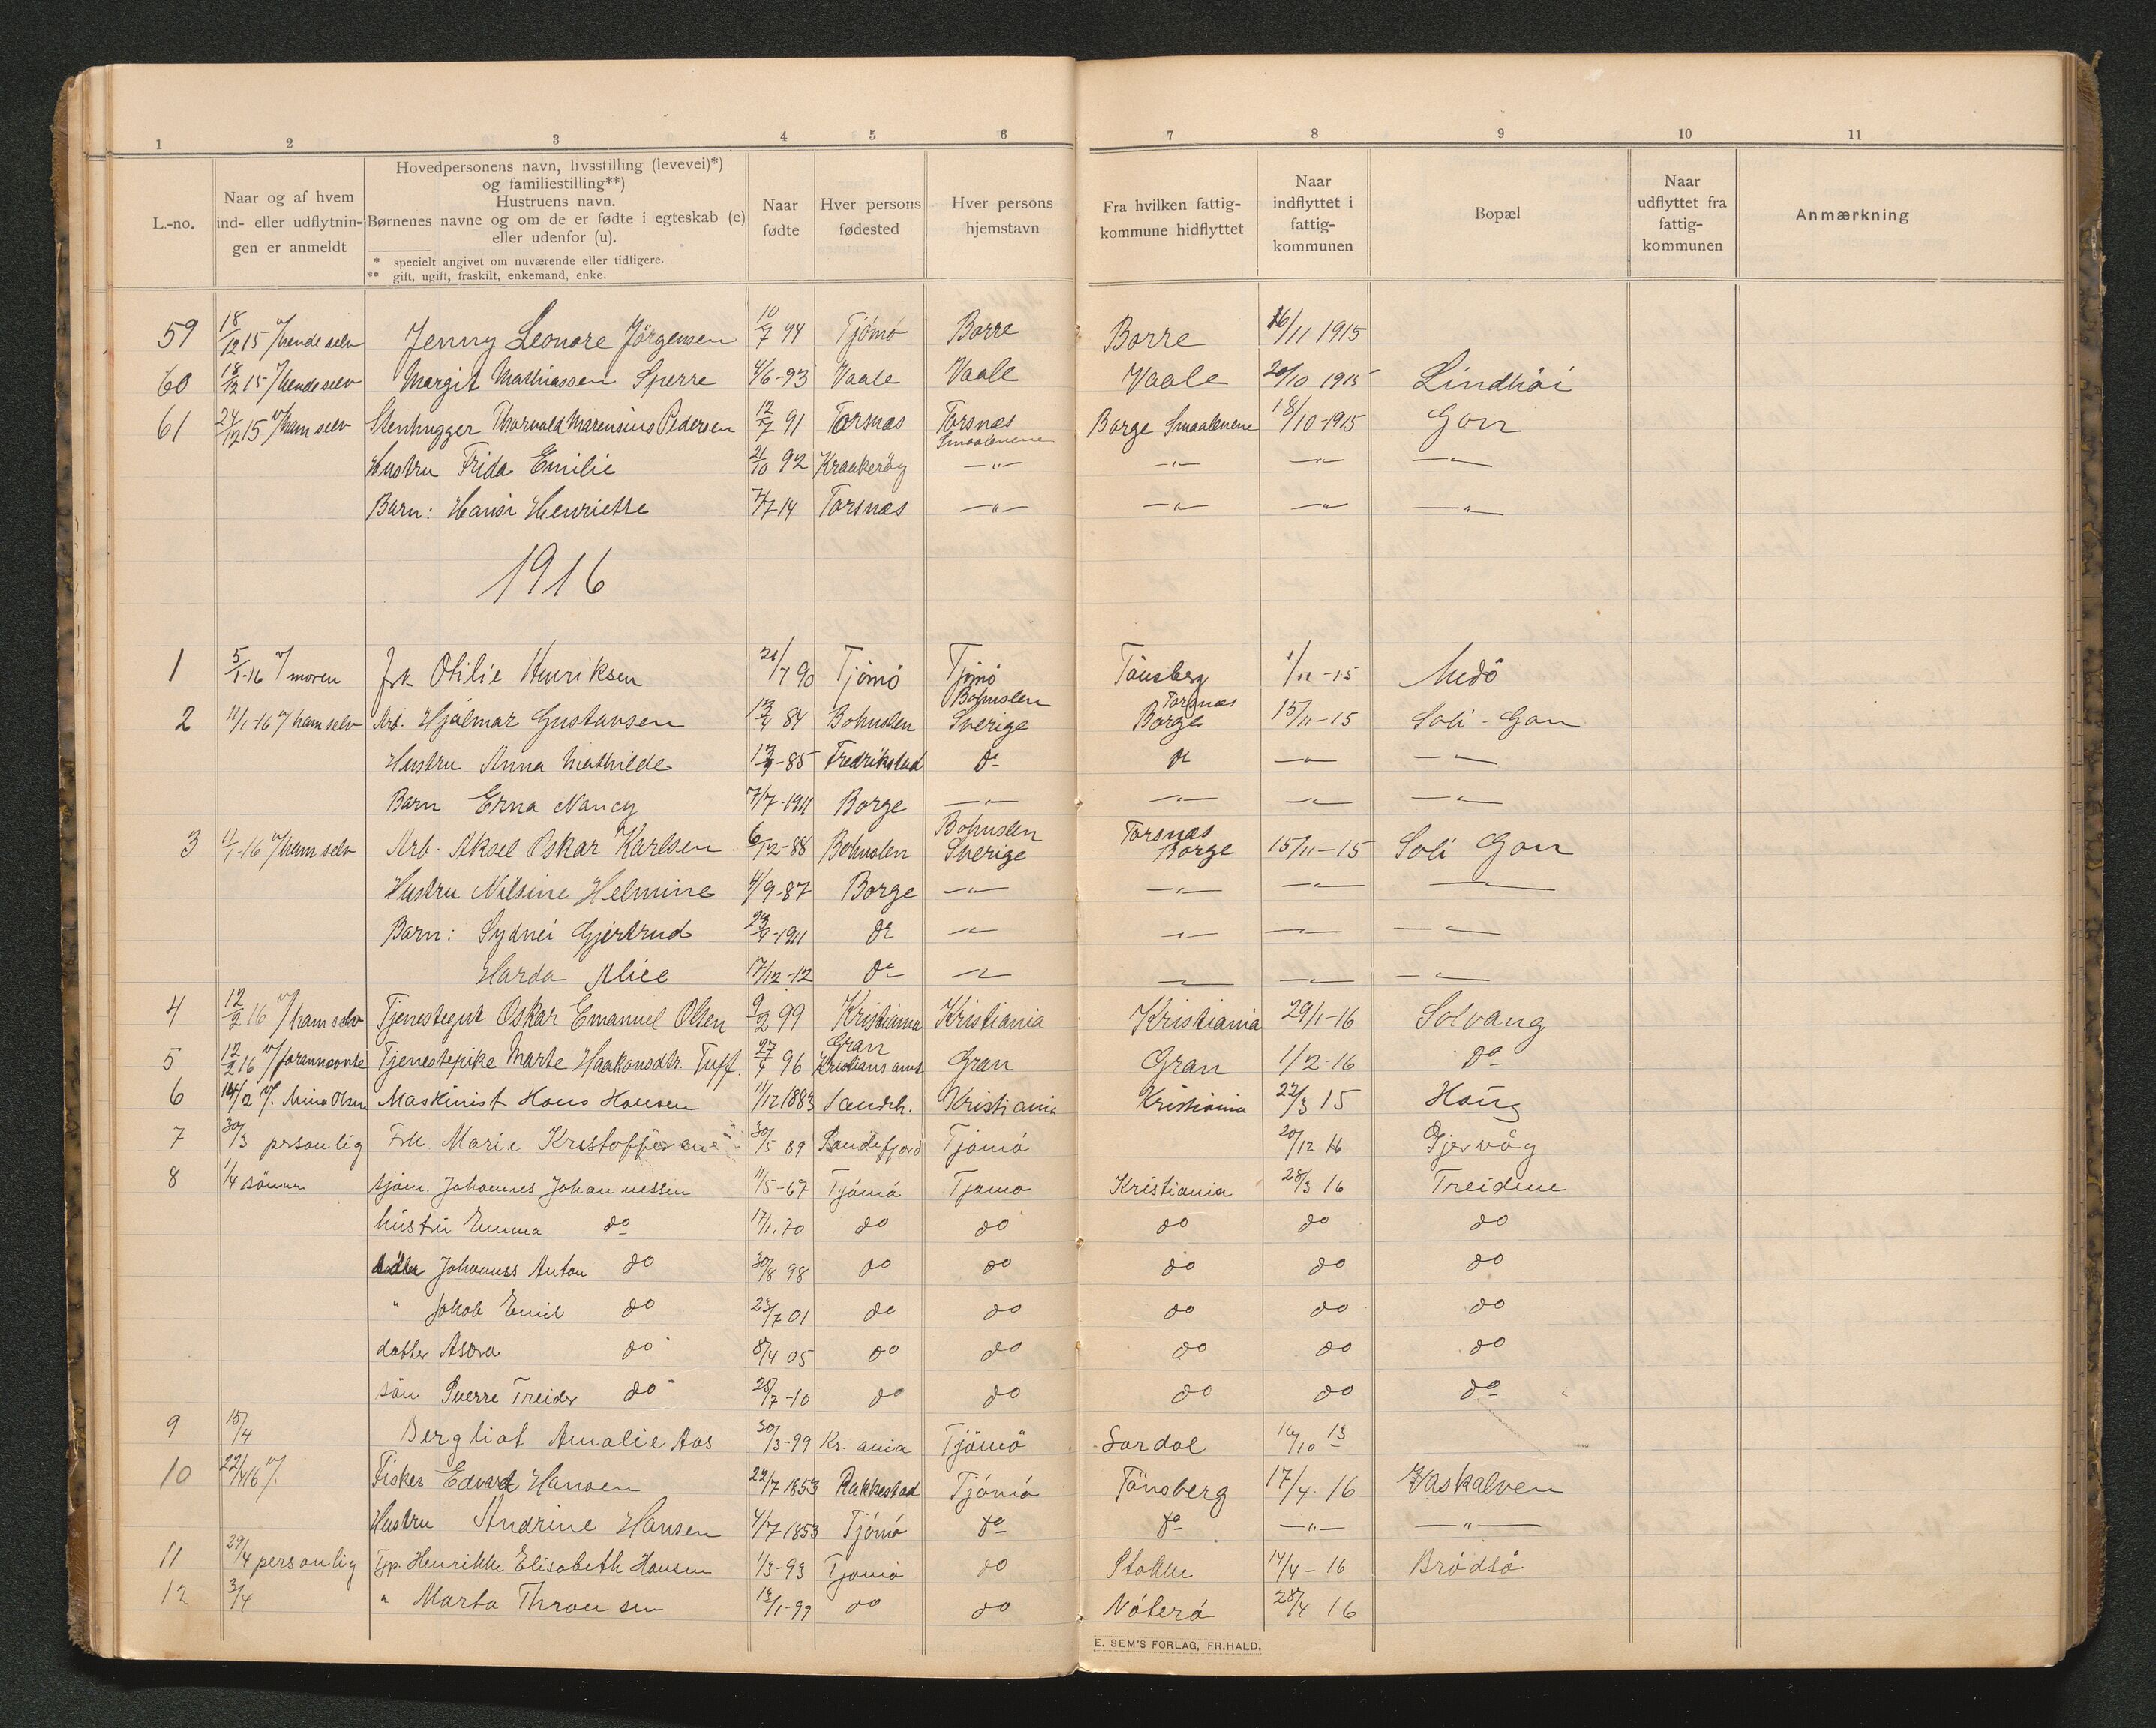 1 2 3 4 5 6 7 8 9 10 11
L.-no.
Naar og af hvem
ind- eller udflytnin-
gen er anmeldt
Hovedpersonens navn, livsstilling (levevei)*)
og familiestilling**)
Hustruens navn.
Børnenes navne og om de er fødte i egteskab (e)
eller udenfor (u).
* specielt angivet om nuværende eller tidligere.
** gift, ugift, fraskilt, enkemand, enke.
Naar
fødte
Hver persons
fødested
Hver persons
hjemstavn
Fra hvilken fattig-
kommune hidflyttet
Naar
indflyttet i
fattig-
kommunen
Bopæl
Naar
udflyttet fra
fattig-
kommunen
Anmærkning
59 18/12 15 v/hende selv Jenny Leonore Jörgensen 10/7 94 Tjömö Borre Borre 16/11 1915
60 18/12 15 v/hende selv Margit Mathiassen Sperre 4/6-93 Vaale Vaale Vaale 20/10 1915 Lindhöi
61 24/12 15 v/ham selv Stenhugger Thorvald Marensius Pedersen 12/7 91 Torsnæs Torsnæs Smaalenene Borge Smaalenene 18/10-1915 Gon
Hustru Frida Emilie 21/10 92 Kraakeröy —"— —"— —"— —"—
Barn: Hansi Henriette 7/7 14 Torsnæs —"— —"— —"— —"—
1916
1 5/1-16 v/moren frk Otilie Henriksen 21/7 90 Tjömö Tjömö Tönsberg 1/11-15 Medö
2 11/1-16 v/ham selv Arb. Hjalmar Gustavsen 84 Bohuslen Bohuslen Sverige Torsnæs Borge 15/11-15 Soli-Gon
Hustru Anna Mathilde -85 Fredrikstad do do —"— —"—
Barn Erna Nancy 7/7-1911 Borge —"— —"— —"— —"—
3 11/1-16 v/ham selv Arb. Aksel Oskar Karlsen 6/12-88 Bohuslen Bohuslen Sverige Torsnæs Borge 15/11-15 Soli Gon
Hustru Nilsine Helmine 4/9-87 Borge —"— —"— —"— —"—
Barn: Sydnei Gjertrud -1911 do —"— —"— —"— —"—
Harda Alice 17/12-12 do —"— —"— —"— —"—
4 12/2 16 v/ham selv Tjenestegut Oskar Emanuel Olsen 9/2 99 Kristiania Kristiania Kristiania 29/1-16 Solvang
5 12/2 16 v/forannævnte Tjenestepike Marte Haakonsdtr. Tuff. 96 Gran Kristians amt Gran Gran 1/2-16 do
6 14/2 v/. Mina Olsen Maskinist Hans Hansen 11/12 1883 Sandeh. Kristiania Kristiania 22/3 15 Haug
7 30/3 prsonlig Frk Marie Kristoffersen 30/5 89 Sandefjord Tjömö 20/12 16 Gjervåg
8 1/4 sönnen sjöm. Johannes Johannessen 11/5-67 Tjömö Tjömo Kristiania 28/3 16 Treidene
hustru Emma do 17/1.70 do do do do do
Johannes Anton do 30/8 98 do do do do do
" Jakob Emil do 23/7 01 do do do do do
datter Astra do 8/4 05 do do do do do
sön Sverre Treider do 28/7-10 do do do do do
9 15/4 Bergliot Amalie Aas 30/3-99 Kr. ania Tjömö Sordal 10 13
10 22/4 16 v/. Fisker Edvard Hansen 22/7 1853 Rakkestad Tjömö Tönsberg 17/4 16 Vaskalven
Hustru Andrine Hansen 4/7 1853 Tjömö do do —"— —"—
11 29/4 personlig Tjp. Henrikke Elisabeth Hansen 1/3-93 Tjömö do Stokke 14/4-16 Brödsö
12 3/4 " Marta Thronsen 1-99 do do Nöterö 28/4 16
E. SEM'S FORLAG, FR.HALD.